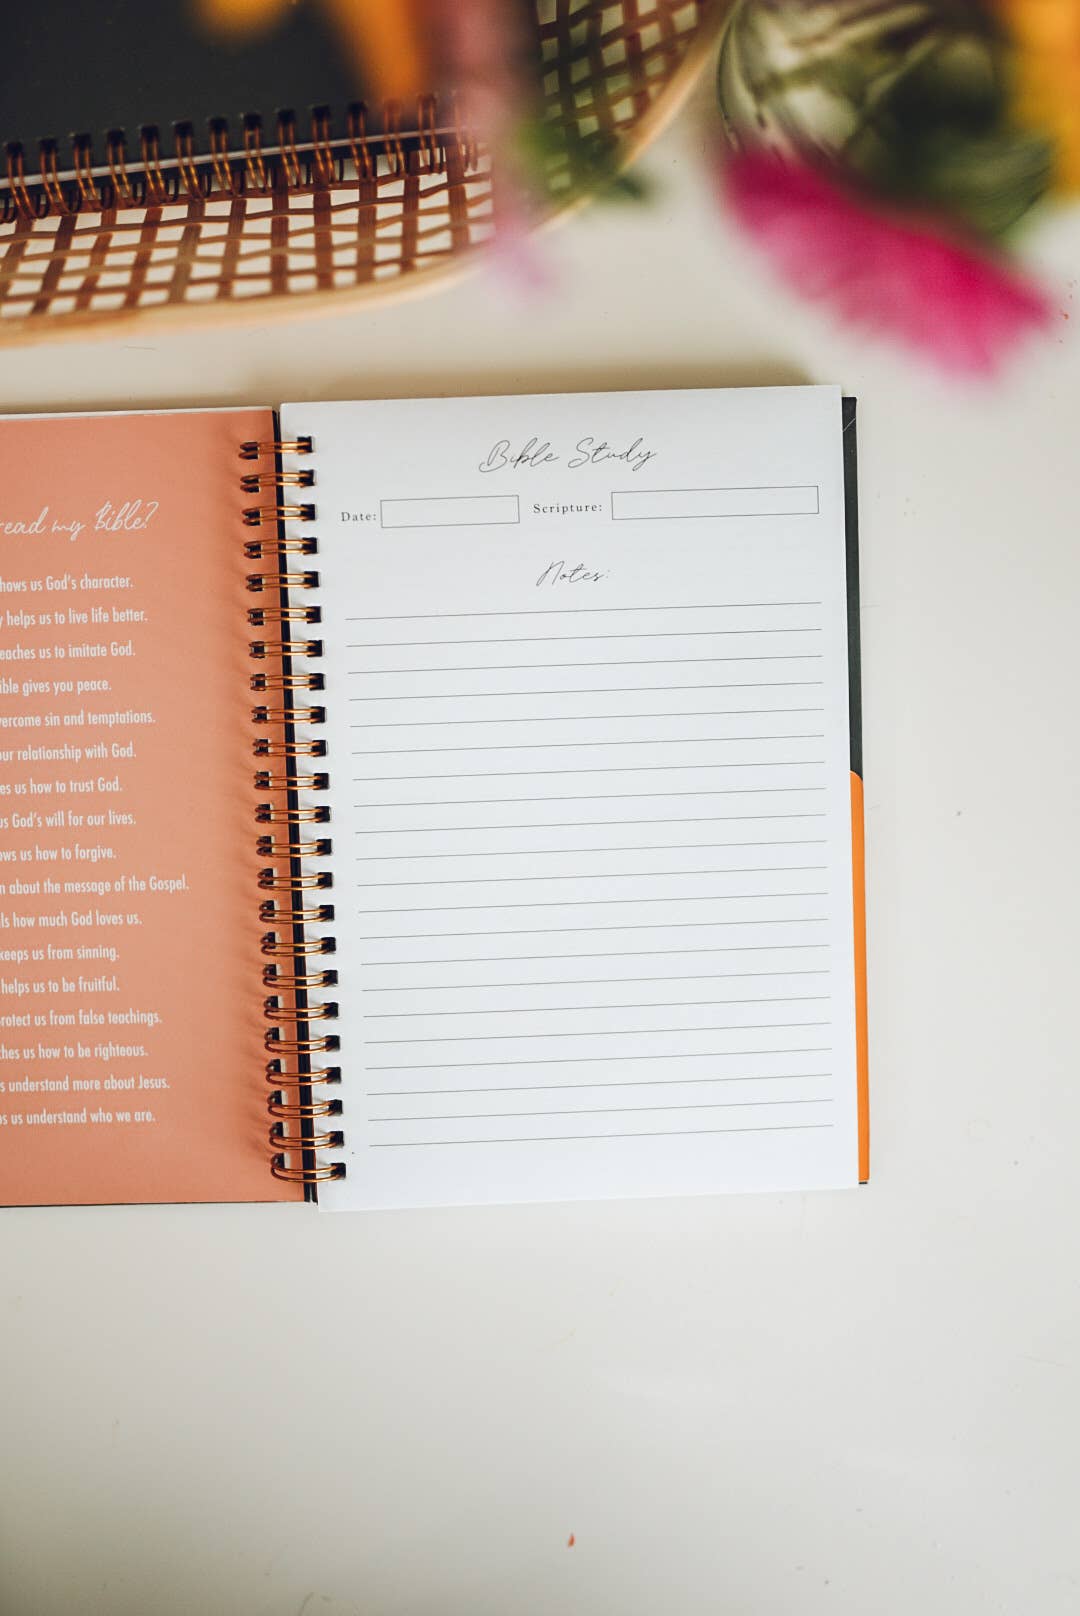 read my Bible?
hows us God's character.
y helps us to live life better.
eaches us to imitate God.
ible gives you peace.
vercome sin and temptations.
our relationship with God.
es us how to trust God.
us God's will for our lives.
ows us how to forgive.
n about the message of the Gospel.
ls how much God loves us.
keeps us from sinning.
helps us to be fruitful.
rotect us from false teachings.
ches us how to be righteous.
s understand more about Jesus.
ps us understand who we are.
Bible Study
Date: Scripture:
Notes: